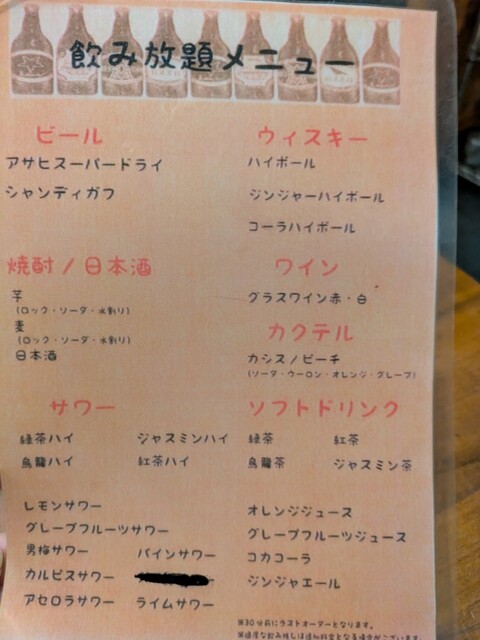 飲み放題メニュー
ビール
アサヒスーパードライ
シャンディガフ
ウィスキー
ハイボール
ジンジャーハイボール
コーラハイボール
焼酎/日本酒
芋
(ロック・ソーダ・水割り)
麦
(ロック・ソーダ・水割り)
日本酒
ワイン
グラスワイン赤・白
カクテル
カシス/ピーチ
(ソーダ・ウーロン・オレンジ・グレープ)
サワー
緑茶ハイ ジャスミンハイ
烏龍ハイ 紅茶ハイ
レモンサワー
グレープフルーツサワー
男梅サワー パインサワー
カルピスサワー
アセロラサワー ライムサワー
ソフトドリンク
緑茶 紅茶
烏龍茶 ジャスミン茶
オレンジジュース
グレープフルーツジュース
コカコーラ
ジンジャエール
※30分前にラストオーダーとなります。
※過度な飲み残しは追加料金となる場合がございます